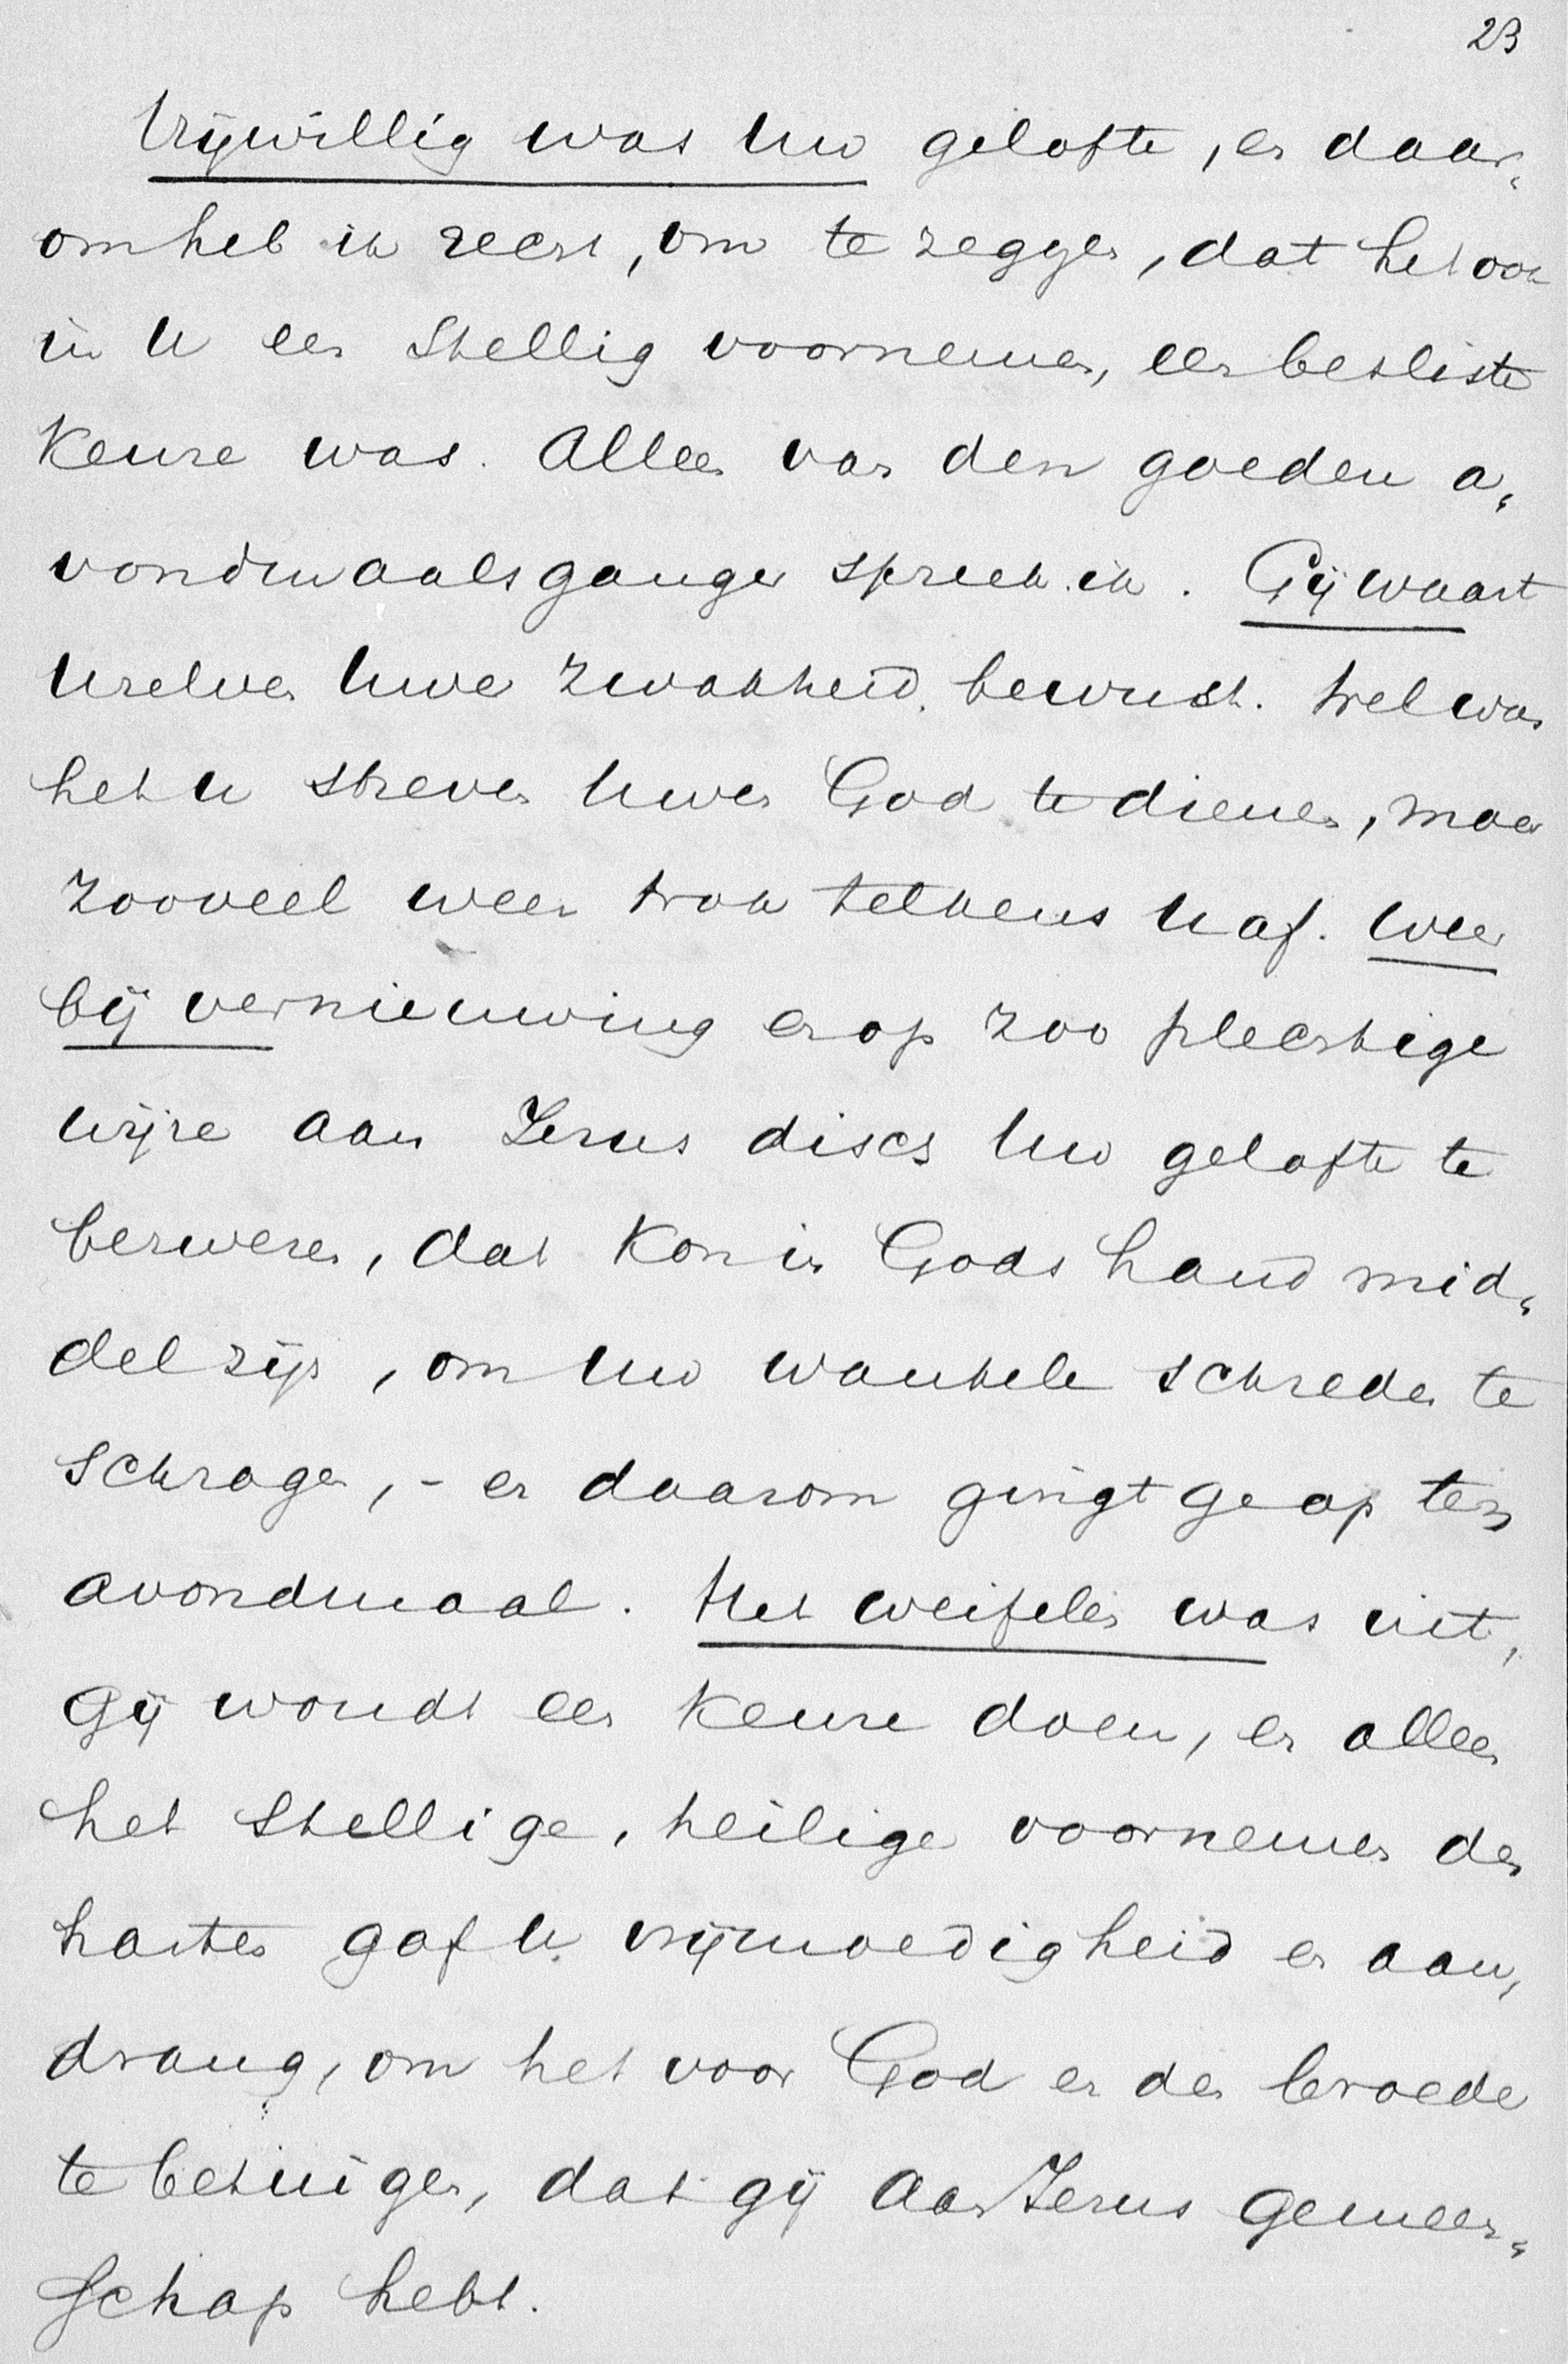 23
Vrijwillig was Uw gelofte, en daar„
om heb ik recht, om te zeggen, dat het ook
in U een stellig voornemen, een besliste
keuze was. Alleen van den goeden a„
vondmaalsganger spreek ik. Gij waart
Uzelven Uwe zwakheid bewust. Wel was
het u streven Uwen God te dienen, maar
zooveel weer trok telkens U af. Weer
bij vernieuwing en op zoo plechtige
wijze aan Jezus disch Uw gelofte te
bezweren, dat kon in Gods hand mid„
del zijn, om Uw wankele schreden te
schragen, - en daarom gingt ge op ten
avondmaal. Het weifelen was uit,
gij woudt een keuze doen, en alleen
het stellige, heilige voornemen des
harten gaf U vrijmoedigheid en aan„
drang, om het voor God en de broeders
te betuigen, dat gij aan Jezus gemeen„
schap hebt.